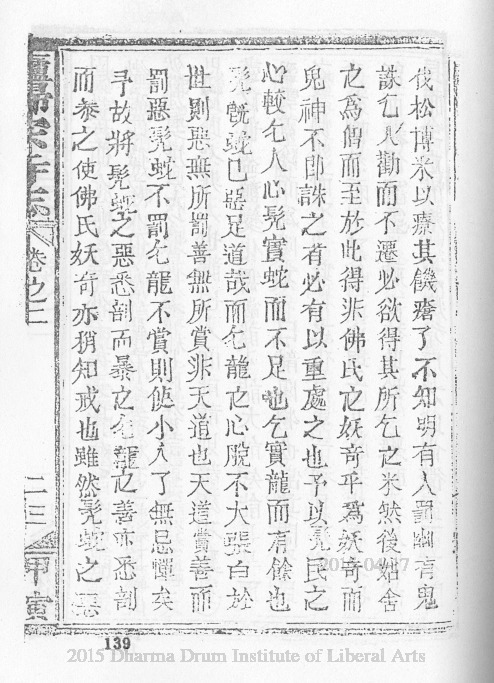 伐松博米以療其饑瘡了不知明有人罰幽有鬼
誅乞人勸而不還必欲得其所乞之米然後始舍
之爲僧而至於此得非佛氏之妖奇乎爲妖奇而
鬼神不即誅之者必有以重處之也予以髡民之
心較乞人心髡實蛇而不足也乞實龍而有餘也
髡旣蛇已惡足道哉而乞龍之心脫不大張白於
世則惡無所罰善無所賞非天道也天道賞善而
罰惡髡蛇不罰乞龍不賞則使小人了無忌憚矣
予故將髡蛇之惡悉剖而暴之乞龍之善亦悉剖
而泰之使佛氏妖奇亦稍知戒也雖然髡蛇之惡
卷之二
二三
甲寅
139
2015 Dharma Drum Institute of Liberal Arts